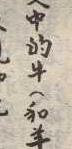 中的牛(和羊